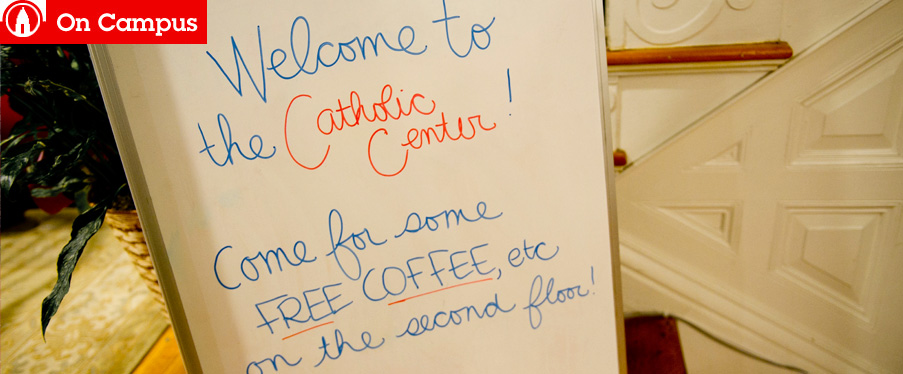 On Campus
Welcome to
the Catholic
Center!
Come for some
FREE COFFEE, etc
on the second floor!